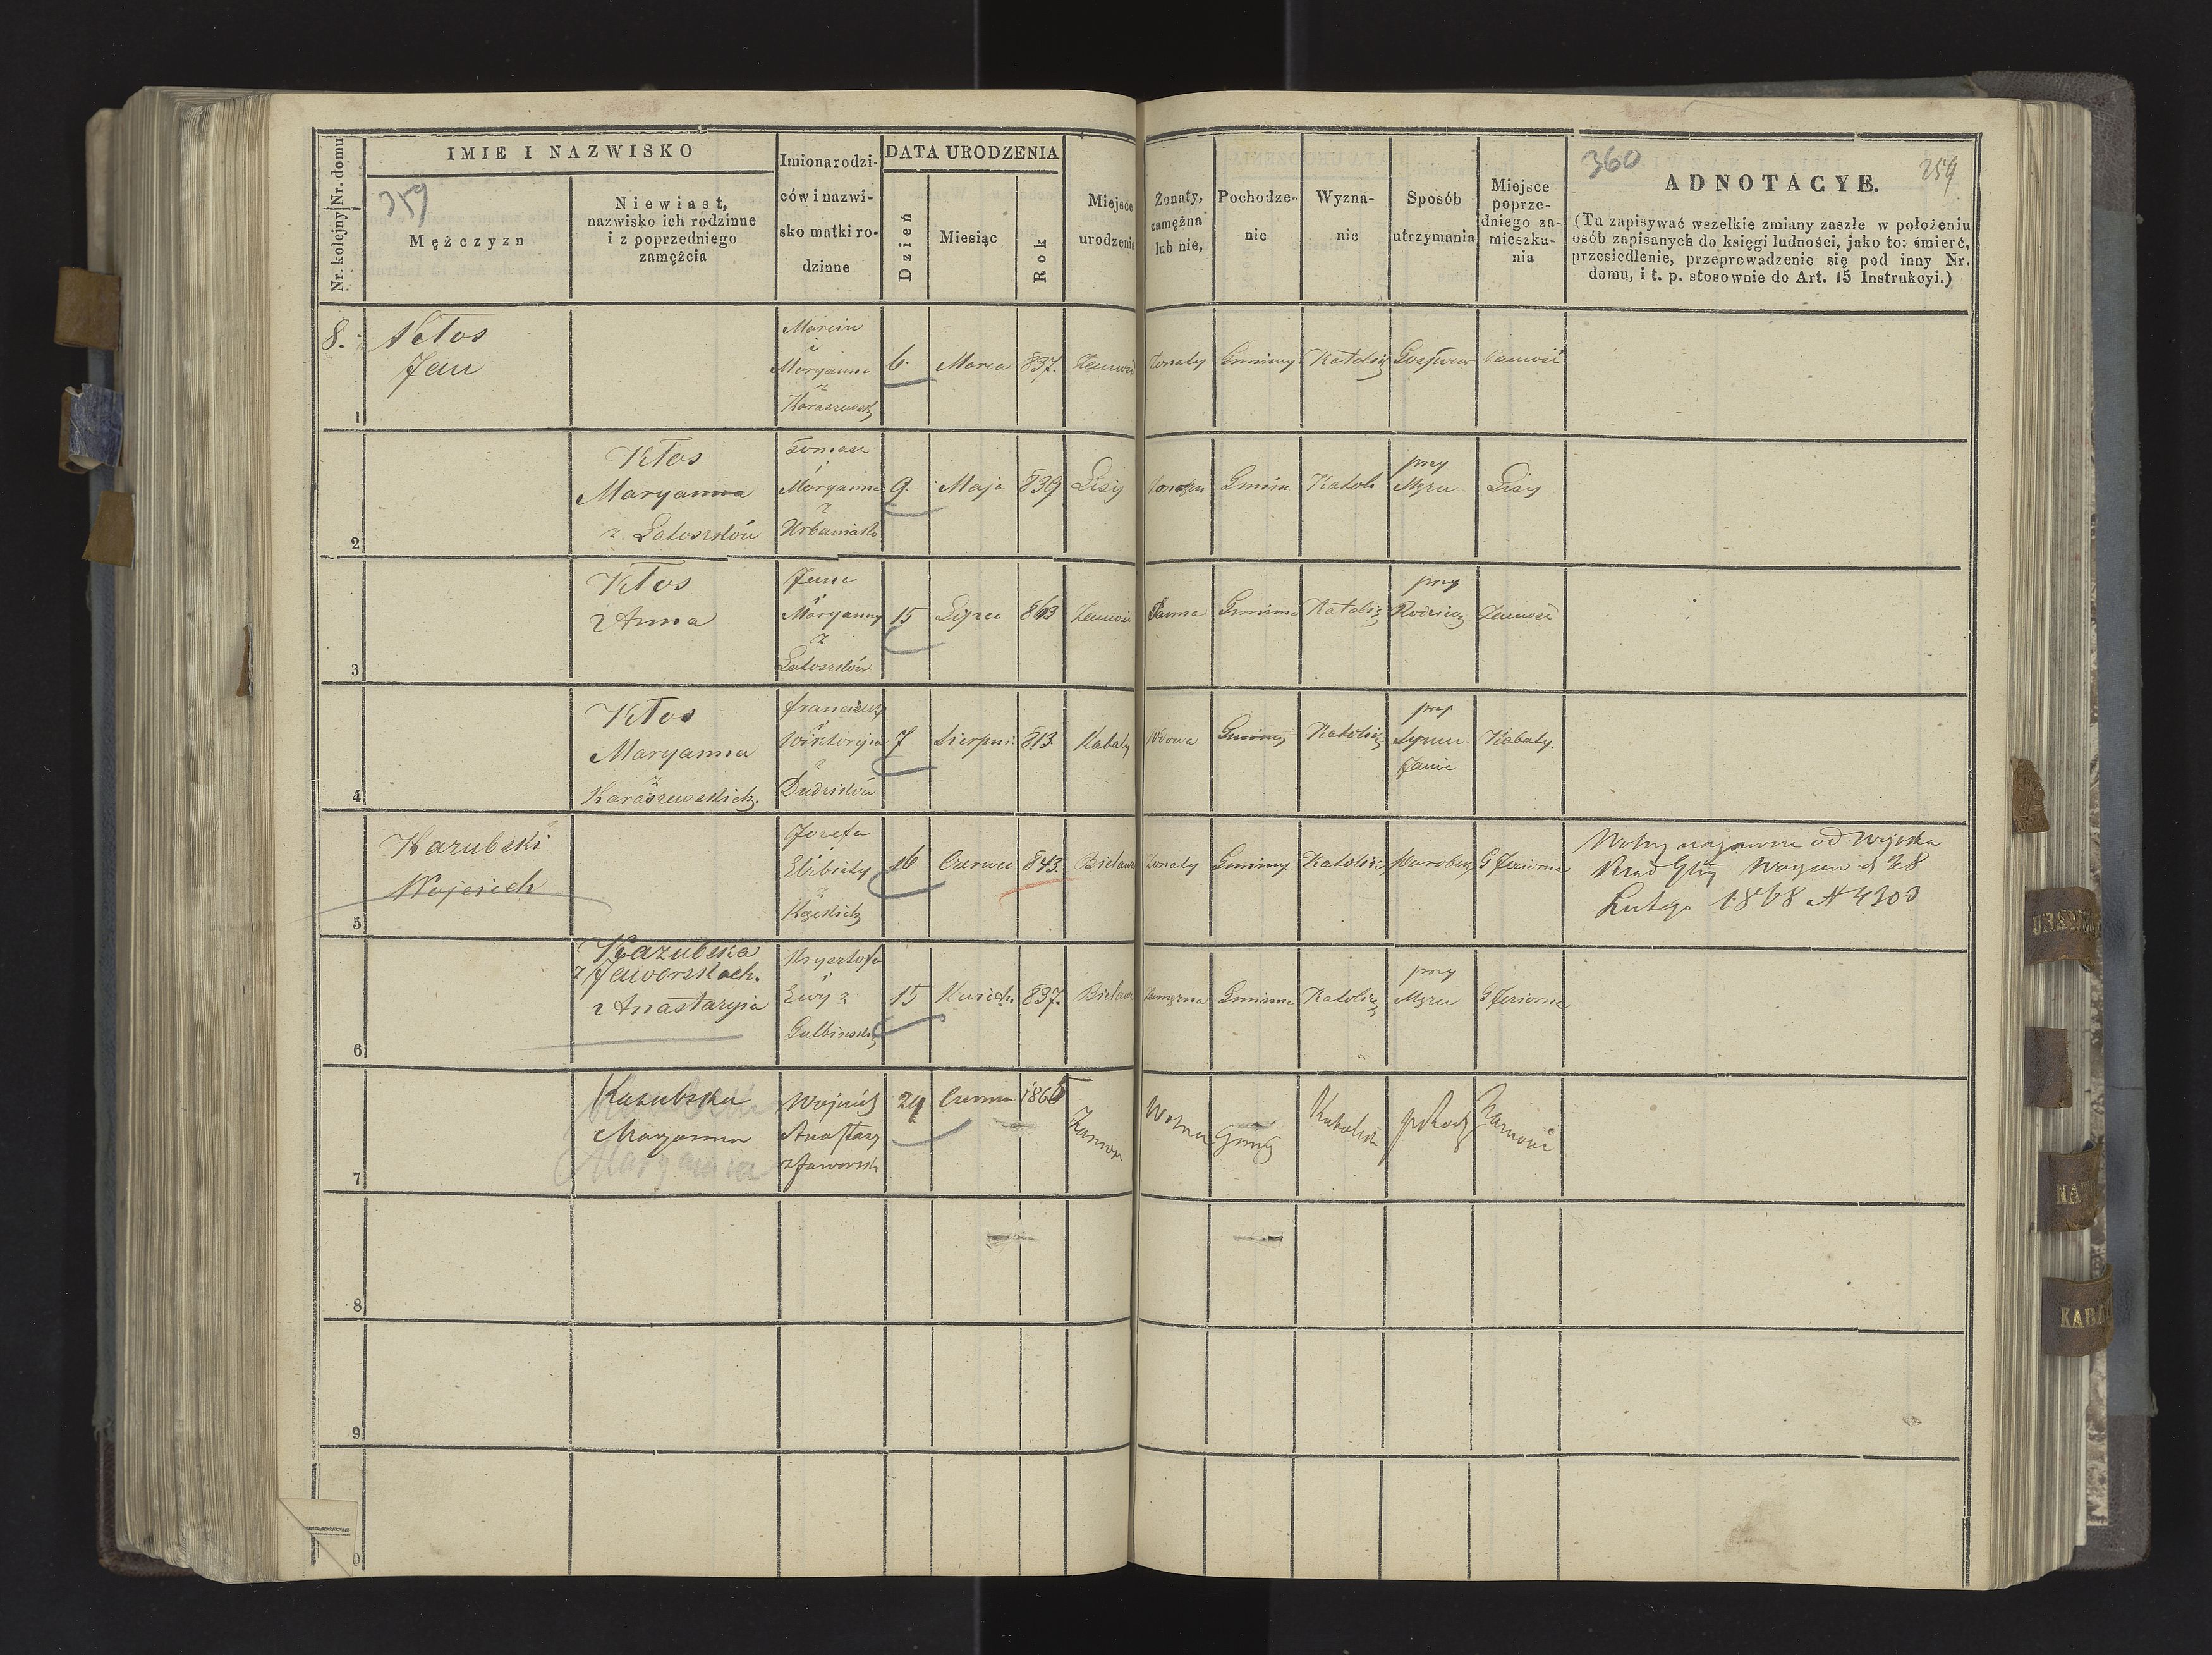 Nr. kolejny Nr. domu
IMIE I NAZWISKO
359
Mężczyzn
Niewiast,
nazwisko ich rodzinne
i z poprzedniego
zamęźcia
Imiona rodzi-
ców i nazwi-
sko matki ro-
dzinne
DATA URODZENIA
Dzień
Miesiąc
Rok
Miejsce
urodzenia
Żonaty,
zamęźna
lub nie,
Pochodze-
nie
Wyzna-
nie
Sposób
utrzymania
Miejsce
poprze-
dniego za-
mieszka-
nia
360
254
ADNOTACYE.
(Tu zapisywać wszelkie zmiany zaszłe w położeniu
osób zapisanych do księgi ludności, jako to: śmierć,
przesiedlenie, przeprowadzenie się pod inny Nr.
domu, i t. p. stosownie do Art. 15 Instrukcyi.)
8.
1
Kłos
Jan
Marcin
i
Maryanna
z
Karaszewsk
6. Marca 837. Zamość Żonaty Gminny Katolic Zamość
2
Kłos
Maryanna
z Latoszków
Tomasz
i
Maryanna
z
Urbaniak
9. Maja 839 Lisy Gmin Katol
przy
Mężu
Lisy
3
Kłos
Anna
Jana
i
Maryanny
z
Latoszków
15 Lipca 863 Zamość Panna Gminna Katolic
przy
Rodzicach
Zamość
4
Kłos
Maryanna
z
Karaszewskich.
Franciszk
i
Wiktoryia
z
Dudzików
7 Sierpni 813. Kabaty Wdowa Gminny Katolic
przy
Synu
Janie
Kabaty.
5
Kazubski
Wojciech
Jozefa
i
Elżbiety
z
16 Czerwca 843. Bielawa Żonaty Gminny Katolic Parobek G Jeziorna
Wolny od Wojska
28
Lutego 1868 N 4303
6
Kazubska
z Jaworskich.
Anastazyia
Krysztofa
i
Ewy z
Gulbinskich
15 Kwiech 837. Bielawa Zamężna Gminna Katolic
przy
Mężu
G Jeziorna
7
Kazubska
Maryanna
Maryanna
Wojciech
Anastazy
z Jaworsk
24 Czerwca 1866 Zamość Wolna Gminy Katolick Zamość
8
9
0
URSYNÓW
NA
KABA